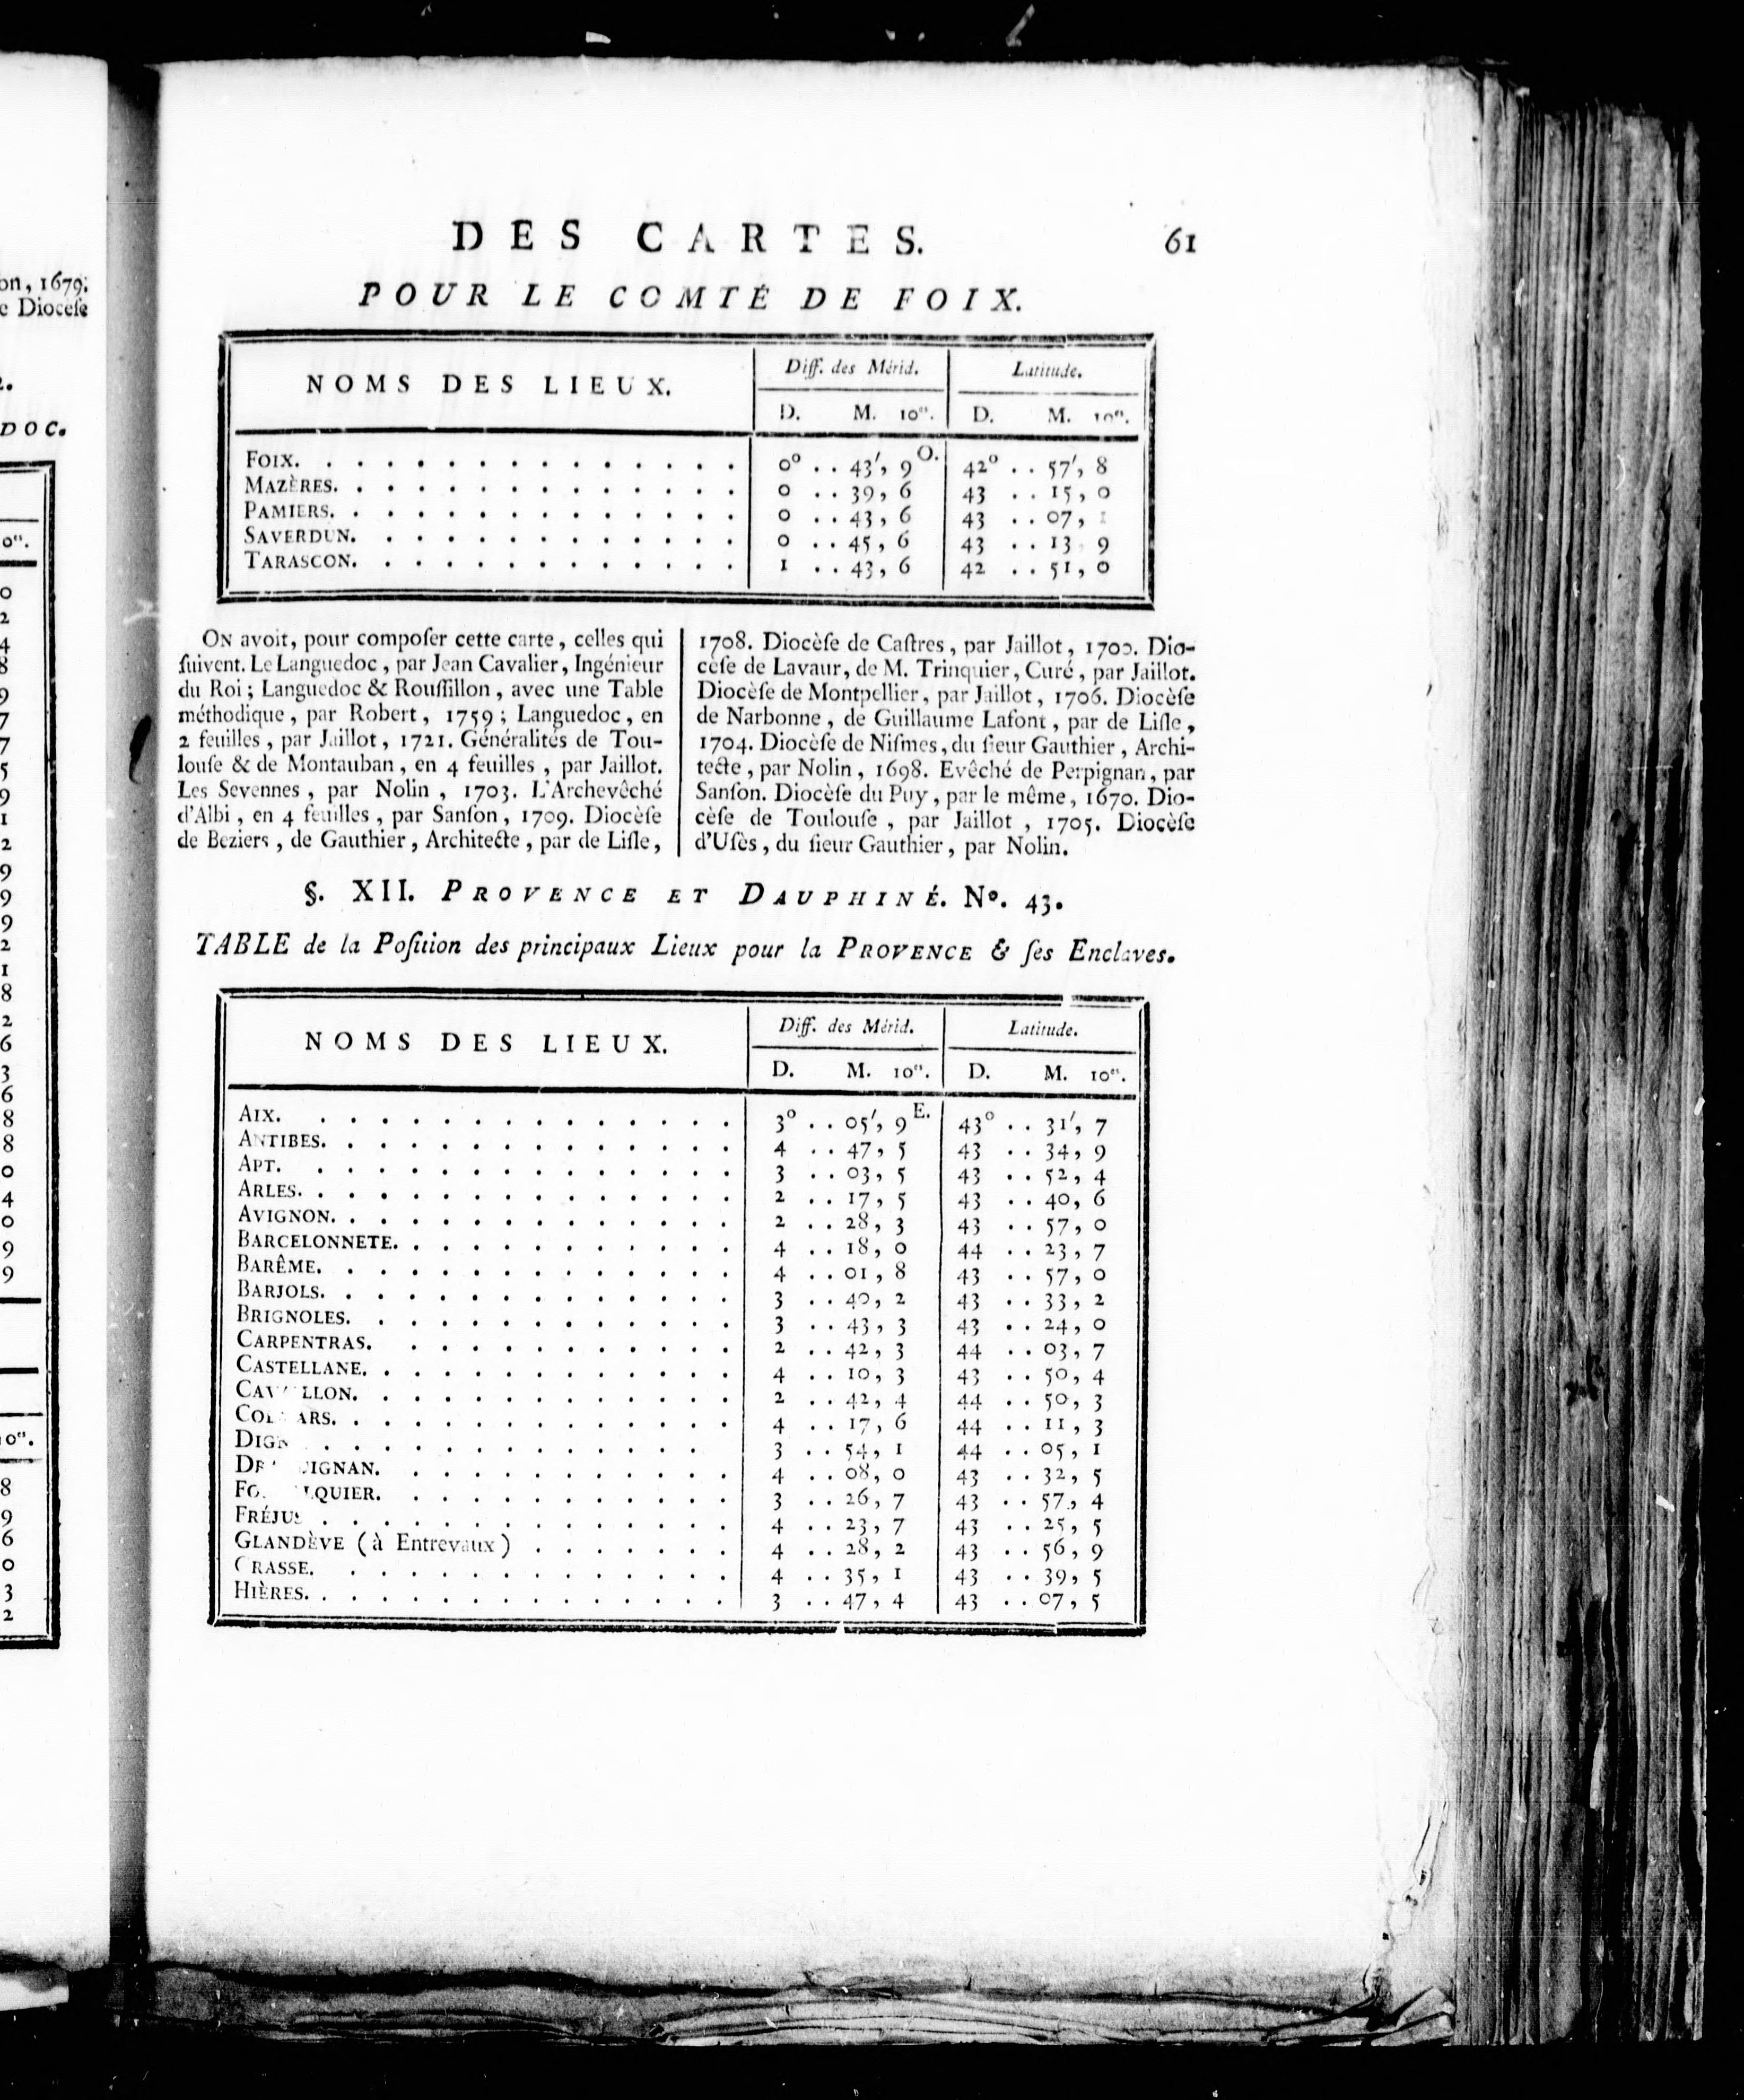 on, 1679;
e Dioceſe
2.
DOC.
0".
0
2
4
8
9
7
7
5
9
1
2
9
9
9
2
1
8
2
6
3
6
8
8
0
4
0
9
9
10".
8
9
6
0
3
2
DES CARTES. 61
POUR LE COMTÉ DE FOIX.
NOMS DES LIEUX. Diff. des Mérid. Latitude.
D. M. 10". D. M. 10".
FOIX. 0° .. 43′, 9 O. 42° .. 57′, 8
MAZÈRES. 0 .. 39, 6 43 .. 15, 0
PAMIERS. 0 .. 43, 6 43 .. 07, 1
SAVERDUN. 0 .. 45, 6 43 .. 13 9
TARASCON. 1 .. 43, 6 42 .. 51, 0
ON avoit, pour compoſer cette carte, celles qui
ſuivent. Le Languedoc, par Jean Cavalier, Ingénieur
du Roi; Languedoc & Rouſſillon, avec une Table
méthodique, par Robert, 1759; Languedoc, en
2 feuilles, par Jaillot, 1721. Généralités de Tou-
louſe & de Montauban, en 4 feuilles, par Jaillot.
Les Sevennes, par Nolin, 1703. L'Archevêché
d'Albi, en 4 feuilles, par Sanſon, 1709. Diocèſe
de Beziers, de Gauthier, Architecte, par de Liſle,
1708. Diocèſe de Caſtres, par Jaillot, 1700. Dio-
cèſe de Lavaur, de M. Trinquier, Curé, par Jaillot.
Diocèſe de Montpellier, par Jaillot, 1706. Diocèſe
de Narbonne, de Guillaume Lafont, par de Liſle,
1704. Diocèſe de Niſmes, du ſieur Gauthier, Archi-
tecte, par Nolin, 1698. Evêché de Perpignan, par
Sanſon. Diocèſe du Puy, par le même, 1670. Dio-
cèſe de Toulouſe, par Jaillot, 1705. Diocèſe
d'Uſès, du ſieur Gauthier, par Nolin.
§. XII. PROVENCE ET DAUPHINÉ. N°. 43.
TABLE de la Poſition des principaux Lieux pour la PROVENCE & ſes Enclaves.
NOMS DES LIEUX. Diff. des Mérid. Latitude.
D. M. 10". D. M. 10".
AIX. 3° .. 05′, 9 E. 43° .. 31′, 7
ANTIBES. 4 .. 47, 5 43 .. 34, 9
APT. 3 .. 03, 5 43 .. 52, 4
ARLES. 2 .. 17, 5 43 .. 40, 6
AVIGNON. 2 .. 28, 3 43 .. 57, 0
BARCELONNETE. 4 .. 18, 0 44 .. 23, 7
BARÊME. 4 .. 01, 8 43 .. 57, 0
BARJOLS. 3 .. 40, 2 43 .. 33, 2
BRIGNOLES. 3 .. 43, 3 43 .. 24, 0
CARPENTRAS. 2 .. 42, 3 44 .. 03, 7
CASTELLANE. 4 .. 10, 3 43 .. 50, 4
CAVAILLON. 2 .. 42, 4 44 .. 50, 3
COLMARS. 4 .. 17, 6 44 .. 11, 3
DIGN 3 .. 54, 1 44 .. 05, 1
DRAGUIGNAN. 4 .. 08, 0 43 .. 32, 5
FORCALQUIER. 3 .. 26, 7 43 .. 57, 4
FRÉJUS 4 .. 23, 7 43 .. 25, 5
GLANDÈVE (à Entrevaux) 4 .. 28, 2 43 .. 56, 9
GRASSE. 4 .. 35, 1 43 .. 39, 5
HIÈRES. 3 .. 47, 4 43 .. 07, 5